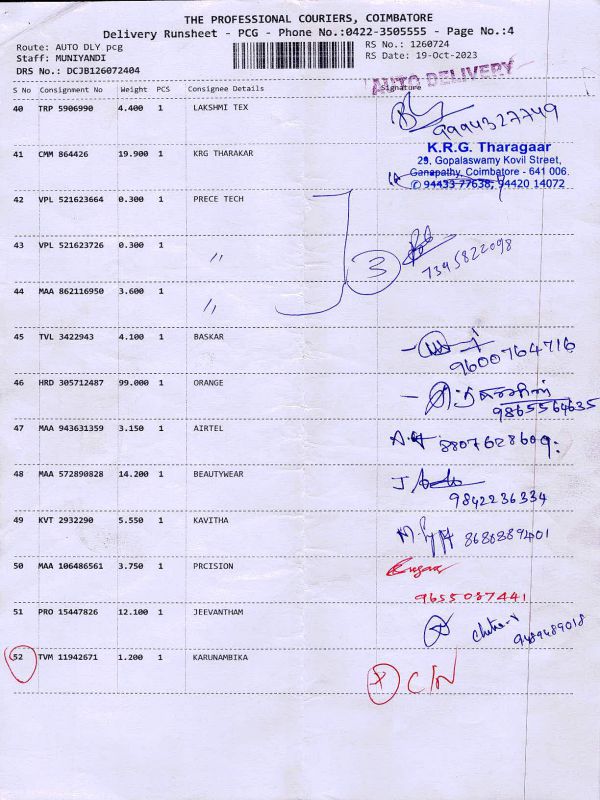 THE PROFESSIONAL COURIERS, COIMBATORE
Delivery Runsheet - PCG - Phone No.:0422-3505555 - Page No.:4
Route: AUTO DLY pcg
Staff: MUNIYANDI
DRS No.: DCJB126072404
RS No.: 1260724
RS Date: 19-Oct-2023
AUTO DELIVERY
S No Consignment No Weight PCS Consignee Details Signature
40 TRP 5906990 4.400 1 LAKSHMI TEX
9994327749
41 CMM 864426 19.900 1 KRG THARAKAR
K.R.G. Tharagaar
29, Gopalaswamy Kovil Street,
Ganapathy, Coimbatore - 641 006.
✆ 94433 77638, 94420 14072
42 VPL 521623664 0.300 1 PRECE TECH
43 VPL 521623726 0.300 1 〃
3
7395822098
44 MAA 862116950 3.600 1 〃
45 TVL 3422943 4.100 1 BASKAR
9600764716
46 HRD 305712487 99.000 1 ORANGE
9865564635
47 MAA 943631359 3.150 1 AIRTEL
8807628609
48 MAA 572890828 14.200 1 BEAUTYWEAR
9842236334
49 KVT 2932290 5.550 1 KAVITHA
50 MAA 106486561 3.750 1 PRCISION
9655087441
51 PRO 15447826 12.100 1 JEEVANTHAM
9489489018
52 TVM 11942671 1.200 1 KARUNAMBIKA